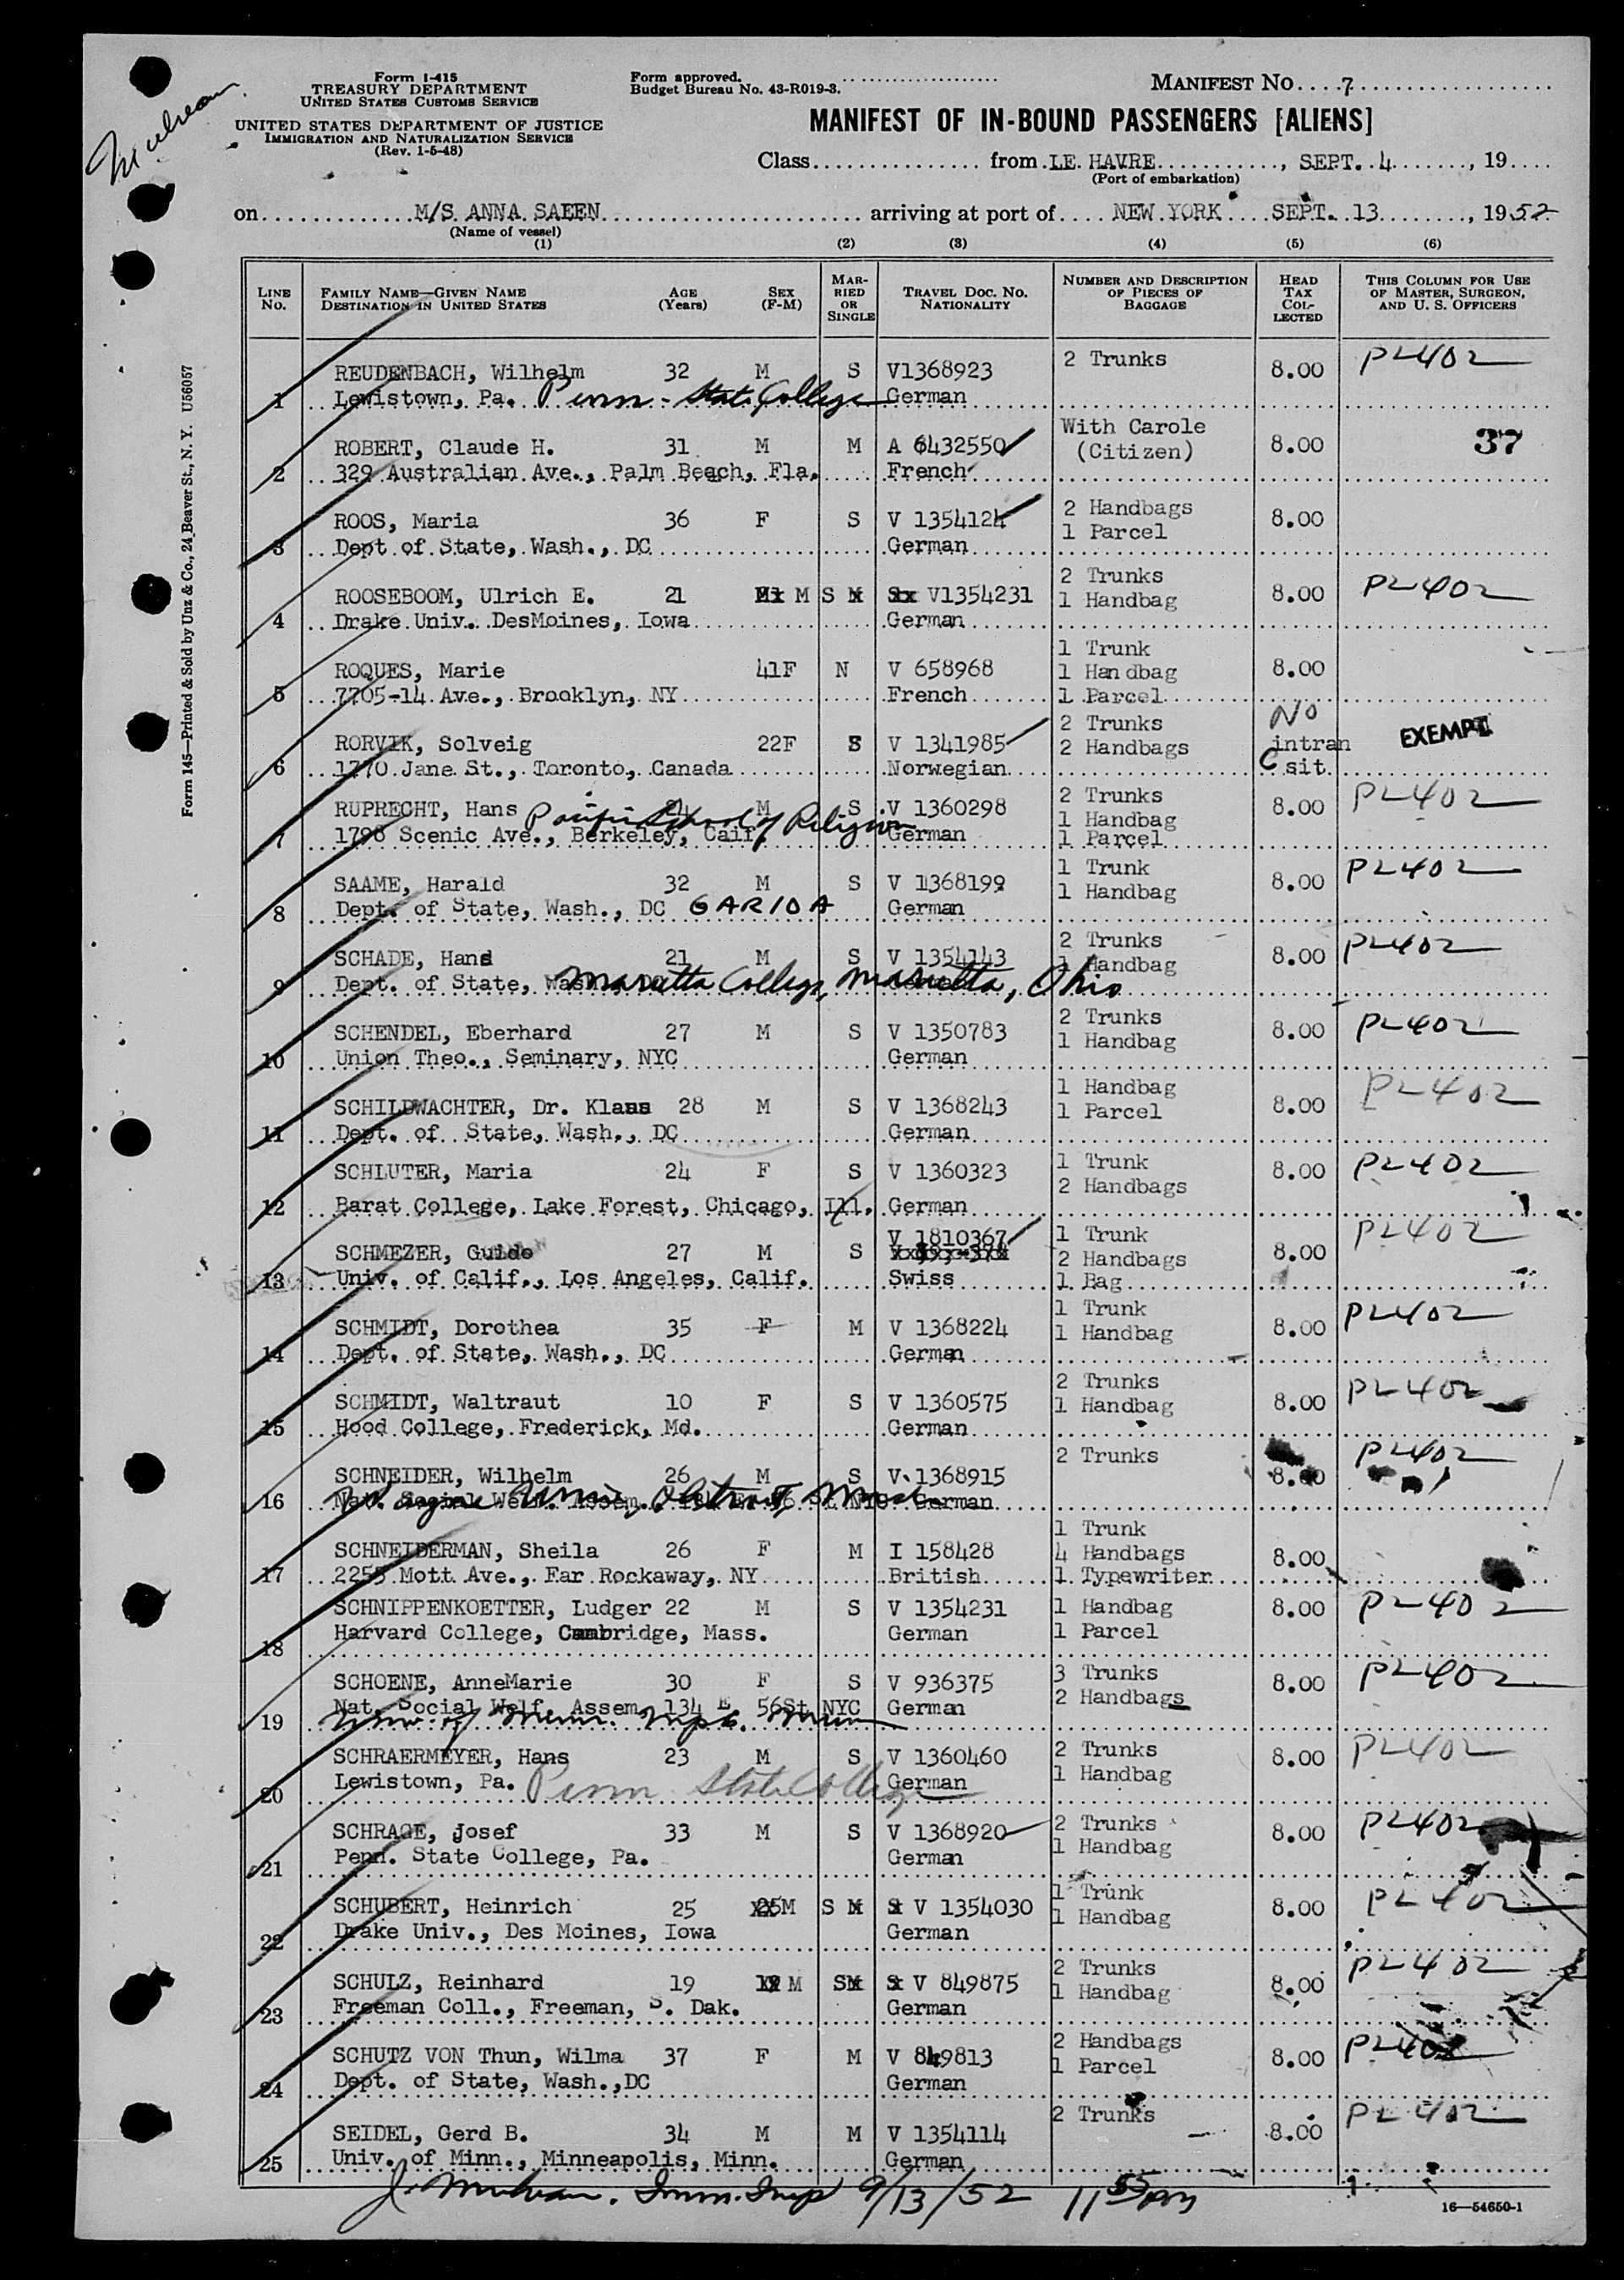 Form I-415
TREASURY DEPARTMENT
UNITED STATES CUSTOMS SERVICE
UNITED STATES DEPARTMENT OF JUSTICE
IMMIGRATION AND NATURALIZATION SERVICE
(Rev. 1-5-48)
Form approved.
Budget Bureau No. 43-R019-3.
MANIFEST NO. 7
MANIFEST OF IN-BOUND PASSENGERS [ALIENS]
Class from LE HAVRE, SEPT. 4, 19
(Port of embarkation)
on M/S ANNA SALEN arriving at port of NEW YORK SEPT. 13, 1952
(Name of vessel)
(1) (2) (3) (4) (5) (6)
LINE No. FAMILY NAME—GIVEN NAME DESTINATION IN UNITED STATES AGE (Years) SEX (F-M) MARRIED OR SINGLE TRAVEL DOC. NO. NATIONALITY NUMBER AND DESCRIPTION OF PIECES OF BAGGAGE HEAD TAX COLLECTED THIS COLUMN FOR USE OF MASTER, SURGEON, AND U. S. OFFICERS
REUDENBACH, Wilhelm 32 M S V1368923 2 Trunks 8.00 PL402
1 Lewistown, Pa. Penn. State College German
ROBERT, Claude H. 31 M M A 6432550 With Carole (Citizen) 8.00 37
2 329 Australian Ave., Palm Beach, Fla. French
ROOS, Maria 36 F S V 1354124 2 Handbags 1 Parcel 8.00
3 Dept of State, Wash., DC German
ROOSEBOOM, Ulrich E. 21 M S V1354231 2 Trunks 1 Handbag 8.00 PL402
4 Drake Univ. DesMoines, Iowa German
ROQUES, Marie 41F N V 658968 1 Trunk 1 Handbag 8.00
5 7705-14 Ave., Brooklyn, NY French 1 Parcel
RORVIK, Solveig 22F S V 1341985 2 Trunks 2 Handbags No intran EXEMPT
6 1770 Jane St., Toronto, Canada Norwegian C sit
RUPRECHT, Hans 24 M S V 1360298 2 Trunks 1 Handbag 8.00 PL402
Pacific School of Religion
7 1798 Scenic Ave., Berkeley, Caif. German 1 Parcel
SAAME, Harald 32 M S V 1368199 1 Trunk 1 Handbag 8.00 PL402
8 Dept. of State, Wash., DC GARIOA German
SCHADE, Hans 21 M S V 1354143 2 Trunks 1 Handbag 8.00 PL402
9 Dept. of State, Wash. Marietta College, Marietta, Ohio
SCHENDEL, Eberhard 27 M S V 1350783 2 Trunks 1 Handbag 8.00 PL402
10 Union Theo., Seminary, NYC German
SCHILDWACHTER, Dr. Klaus 28 M S V 1368243 1 Handbag 1 Parcel 8.00 PL402
11 Dept. of State, Wash., DC German
SCHLUTER, Maria 24 F S V 1360323 1 Trunk 2 Handbags 8.00 PL402
12 Barat College, Lake Forest, Chicago, Ill. German
SCHMEZER, Guido 27 M S V 1810367 1 Trunk 2 Handbags 8.00 PL402
13 Univ. of Calif., Los Angeles, Calif. Swiss 1 Bag
SCHMIDT, Dorothea 35 F M V 1368224 1 Trunk 1 Handbag 8.00 PL402
14 Dept. of State, Wash., DC German
SCHMIDT, Waltraut 10 F S V 1360575 2 Trunks 1 Handbag 8.00 PL402
15 Hood College, Frederick, Md. German
SCHNEIDER, Wilhelm 26 M S V 1368915 2 Trunks 8.00 PL402
16 Nat. Social Welf. Assem. Wayne Univ., Detroit, German
SCHNEIDERMAN, Sheila 26 F M I 158428 1 Trunk 4 Handbags 8.00
17 2255 Mott Ave., Far Rockaway, NY British 1 Typewriter
SCHNIPPENKOETTER, Ludger 22 M S V 1354231 1 Handbag 8.00 PL402
18 Harvard College, Cambridge, Mass. German 1 Parcel
SCHOENE, AnneMarie 30 F S V 936375 3 Trunks 8.00 PL402
19 Nat. Social Welf. Assem 134 E 56St NYC German 2 Handbags
Univ. of Minn. Mpls. Minn
SCHRAERMEYER, Hans 23 M S V 1360460 2 Trunks 8.00 PL402
20 Lewistown, Pa. Penn State College German 1 Handbag
SCHRAGE, Josef 33 M S V 1368920 2 Trunks 8.00 PL402
21 Penn. State College, Pa. German 1 Handbag
SCHUBERT, Heinrich 25 M S V 1354030 1 Trunk 8.00 PL402
22 Drake Univ., Des Moines, Iowa German 1 Handbag
SCHULZ, Reinhard 19 M S V 849875 2 Trunks 8.00 PL402
23 Freeman Coll., Freeman, S. Dak. German 1 Handbag
SCHUTZ VON Thun, Wilma 37 F M V 849813 2 Handbags 8.00 PL402
24 Dept. of State, Wash.,DC German 1 Parcel
SEIDEL, Gerd B. 34 M M V 1354114 2 Trunks 8.00 PL402
25 Univ. of Minn., Minneapolis, Minn. German
Imm. Insp 9/13/52 11 55 PM
16—54650-1
Form 145—Printed & Sold by Unz & Co., 24 Beaver St., N. Y. U56057